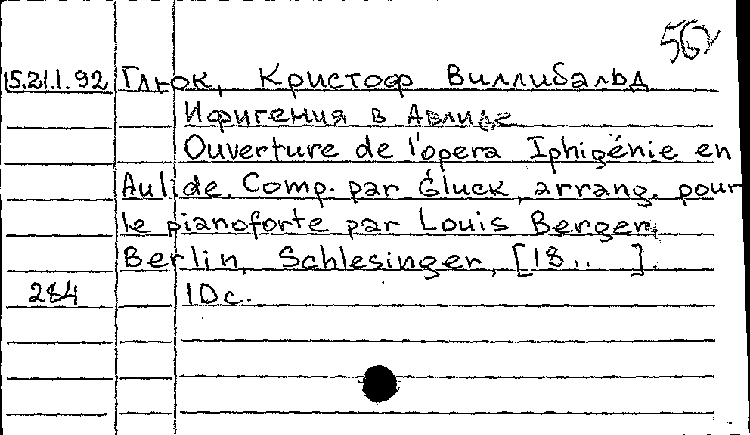 56
15.21.1.92 Глюк, Кристоф Виллибальд
Ифигения в Авлиде
Ouverture de l'opera Iphigénie en
Aulide. Comp. par Gluck, arrang. pour
le pianoforte par Louis Berger.
Berlin, Schlesinger, [18.. ].
284 10 c.